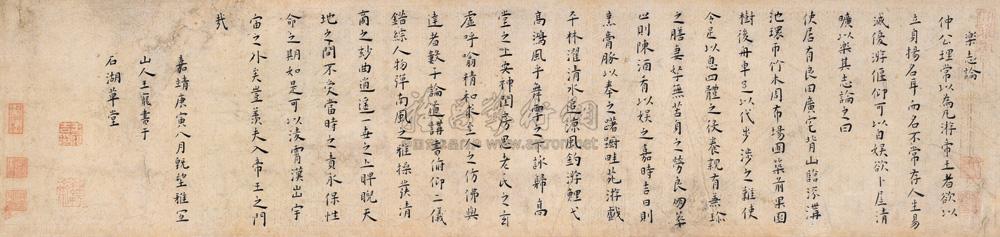 樂志論
仲公理常以為凡游帝王者欲以
立身揚名耳而名不常存人生易
滅優游偃仰可以自娛欲卜居清
曠以樂其志論之曰
使居有良田廣宅背山臨流溝
池環帀竹木周布場圃築前果園
樹後舟車足以代步涉之難使
令足以息四體之役養親有兼珍
之膳妻孥無苦身之勞良朋萃
止則陳酒肴以娛之嘉時吉日則
烹羔豚以奉之躊躇畦苑游戲
平林濯清水追涼風釣游鯉弋
高鴻風乎舞雩之下詠歸高
堂之上安神閨房思老氏之玄
虛呼噏精和求至人之仿佛與
達者數子論道講書俯仰二儀
錯綜人物彈南風之雅操發清
商之妙曲逍遙一世之上睥睨天
地之間不受當時之責永保性
命之期如是可以凌霄漢出宇
宙之外矣豈羨夫入帝王之門
哉
嘉靖庚寅八月既望雅宜
山人王寵書于
石湖草堂